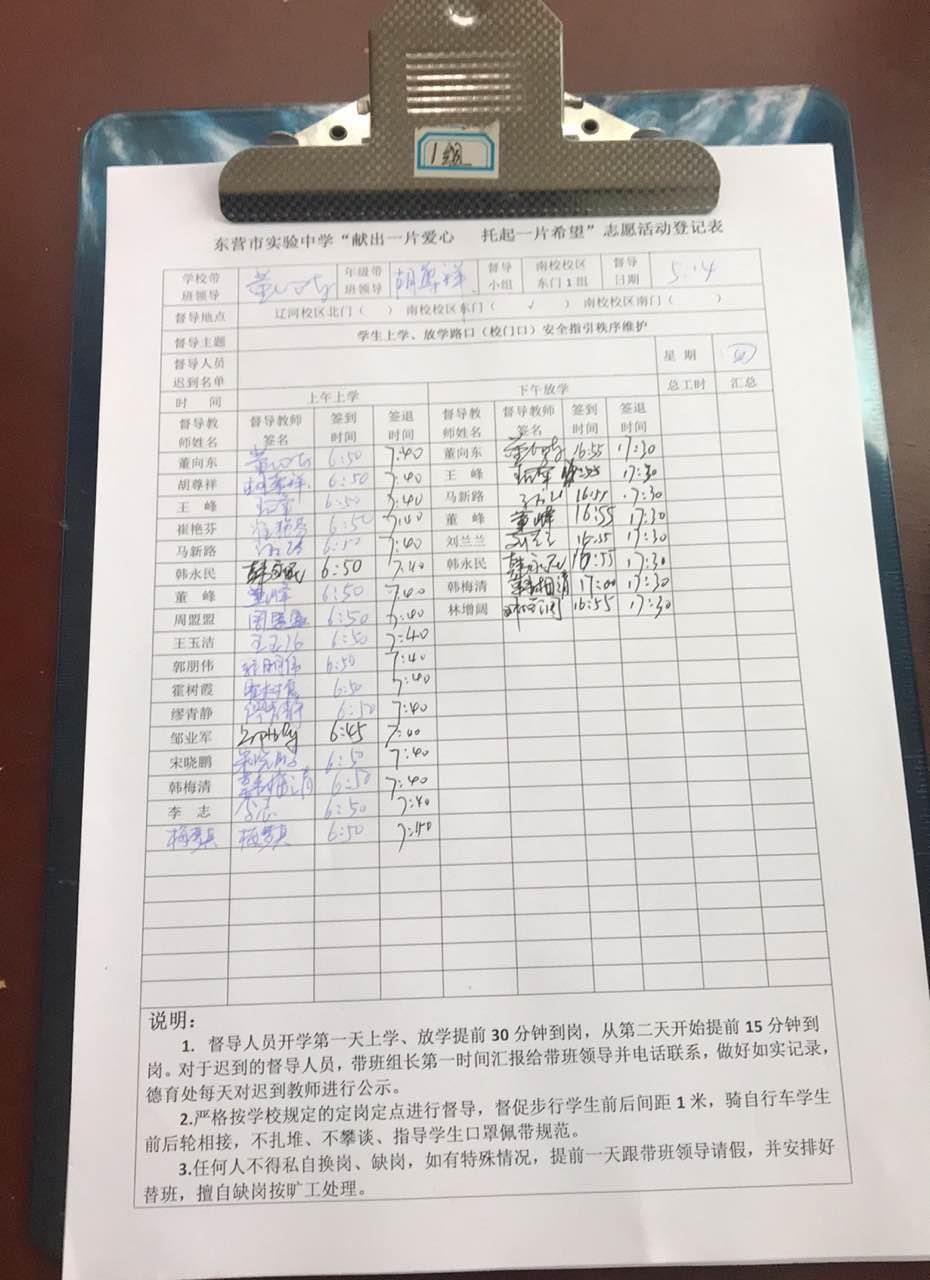 1组
东营市实验中学“献出一片爱心 托起一片希望”志愿活动登记表
学校带班领导 董向东 年级带班领导 胡尊祥 督导小组 南校校区东门1组 督导日期 5.14
督导地点 辽河校区北门（ ） 南校校区东门（ √ ） 南校校区南门（ ）
督导主题 学生上学、放学路口（校门口）安全指引秩序维护
督导人员迟到名单 星 期 四
时 间 上午上学 下午放学 总工时 汇总
督导教师姓名 督导教师签名 签到时间 签退时间 督导教师姓名 督导教师签名 签到时间 签退时间
董向东 董向东 6:50 7:40 董向东 董向东 16:55 17:30
胡尊祥 胡尊祥 6:50 7:40 王 峰 王峰 16:55 17:30
王 峰 王峰 6:50 7:40 马新路 马新路 16:55 17:30
崔艳芬 崔艳芬 6:50 7:40 董 峰 董峰 16:55 17:30
马新路 马新路 6:50 7:40 刘兰兰 刘兰兰 16:55 17:30
韩永民 韩永民 6:50 7:40 韩永民 韩永民 16:55 17:30
董 峰 董峰 6:50 7:40 韩梅清 韩梅清 17:00 17:30
周盟盟 周盟盟 6:50 7:40 林增阔 林增阔 16:55 17:30
王玉洁 王玉洁 6:50 7:40
郭朋伟 郭朋伟 6:50 7:40
霍树霞 霍树霞 6:50 7:40
缪青静 缪青静 6:50 7:40
邹业军 6:45 7:40
宋晓鹏 宋晓鹏 6:50 7:40
韩梅清 韩梅清 6:50 7:40
李 志 李志 6:50 7:40
6:50 7:40
说明：
1. 督导人员开学第一天上学、放学提前30分钟到岗，从第二天开始提前15分钟到
岗。对于迟到的督导人员，带班组长第一时间汇报给带班领导并电话联系，做好如实记录，
德育处每天对迟到教师进行公示。
2.严格按学校规定的定岗定点进行督导，督促步行学生前后间距1米，骑自行车学生
前后轮相接，不扎堆、不攀谈、指导学生口罩佩带规范。
3.任何人不得私自换岗、缺岗，如有特殊情况，提前一天跟带班领导请假，并安排好
替班，擅自缺岗按旷工处理。